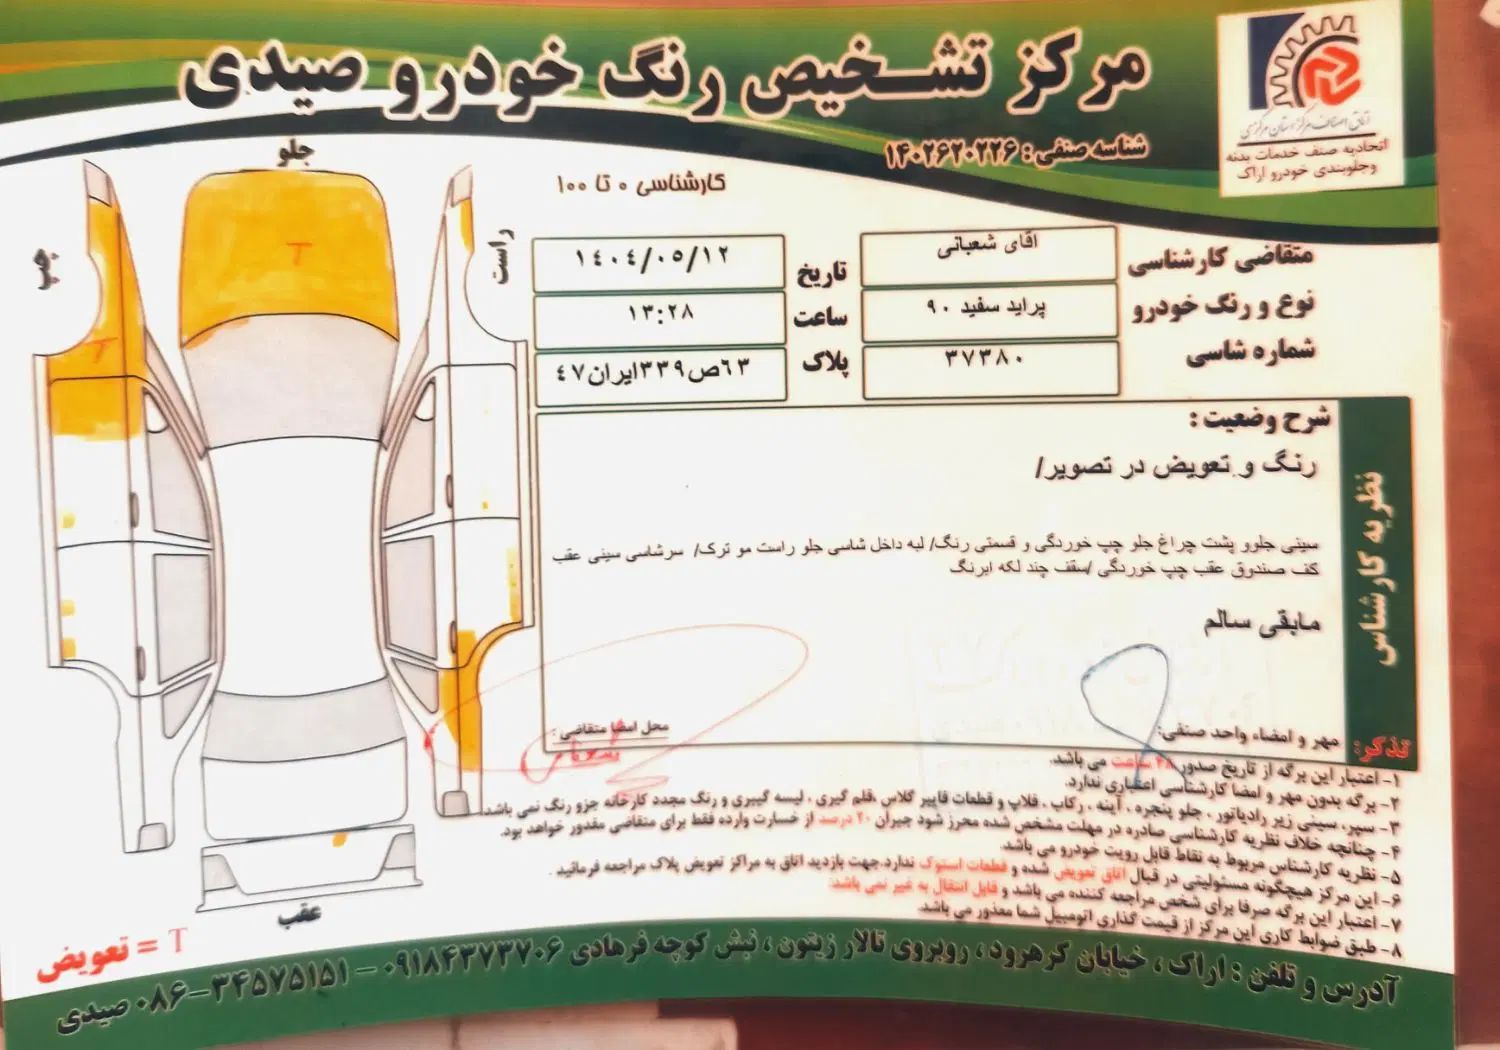 مرکز تشخیص رنگ خودرو صیدی
شناسه صنفی : ۱۴۰۲۶۲۰۲۲۶
اتاق اصناف مرکز استان مرکزی
اتحادیه صنف خدمات بدنه
وجلوبندی خودرو اراک
کارشناسی ۰ تا ۱۰۰
جلو
راست
چپ
عقب
T
T
T = تعویض
متقاضی کارشناسی
اقای شعبانی
تاریخ
۱۴۰۴/۰۵/۱۲
نوع و رنگ خودرو
پراید سفید ۹۰
ساعت
۱۳:۲۸
شماره شاسی
۳۷۳۸۰
پلاک
۶۳ص۳۳۹ایران۴۷
نظریه کارشناس
شرح وضعیت :
رنگ و تعویض در تصویر/
سینی جلوو پشت چراغ جلو چپ خوردگی و قسمتی رنگ/ لبه داخل شاسی جلو راست مو ترک/ سرشاسی سینی عقب
کف صندوق عقب چپ خوردگی /سقف چند لکه ابرنگ
مابقی سالم
مهر و امضاء واحد صنفی:
محل امضا متقاضی :
تذکر:
۱- اعتبار این برگه از تاریخ صدور ۴۸ ساعت می باشد.
۲- برگه بدون مهر و امضا کارشناسی اعتباری ندارد.
۳- سپر، سینی زیر رادیاتور ، جلو پنجره ، آینه ، رکاب ، فلاپ و قطعات فایبر گلاس ،قلم گیری ، لیسه گیری و رنگ مجدد کارخانه جزو رنگ نمی باشد.
۴- چنانچه خلاف نظریه کارشناسی صادره در مهلت مشخص شده محرز شود جبران ۲۰ درصد از خسارت وارده فقط برای متقاضی مقدور خواهد بود.
۵- نظریه کارشناس مربوط به نقاط قابل رویت خودرو می باشد.
۶- این مرکز هیچگونه مسئولیتی در قبال اتاق تعویض شده و قطعات استوک ندارد.جهت بازدید اتاق به مراکز تعویض پلاک مراجعه فرمائید .
۷- اعتبار این برگه صرفا برای شخص مراجعه کننده می باشد و قابل انتقال به غیر نمی باشد.
۸- طبق ضوابط کاری این مرکز از قیمت گذاری اتومبیل شما معذور می باشد.
آدرس و تلفن : اراک ، خیابان کرهرود ، روبروی تالار زیتون ، نبش کوچه فرهادی ۰۹۱۸۴۳۷۳۷۰۶ - ۰۸۶-۳۴۵۷۵۱۵۱ صیدی